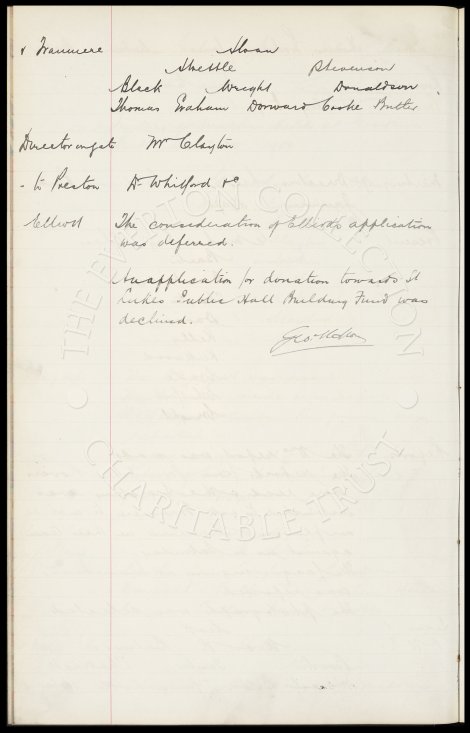 v Tranmere Sloan
Strettle Stevenson
Black Wright Donaldson
Thomas Graham Dorward Cooke Butter
Director on gate Mr Clayton
- to Preston Dr Whitford &c
Elliott The consideration of Elliotts application
was deferred.
An application for donation towards St
Lukes Public Hall Building Fund was
declined.
Geo Mahon
THE EVERTON COLLECTION
CHARITABLE TRUST